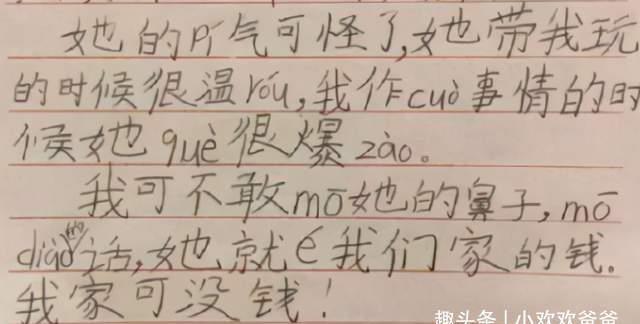 她的pí气可怪了,她带我玩
的时候很温róu,我作cuò事情的时
候她què很爆zào。
我可不敢mō她的鼻子,mō
diào的话,她就é我们家的钱.
我家可没钱!
趣头条 | 小欢欢爸爸